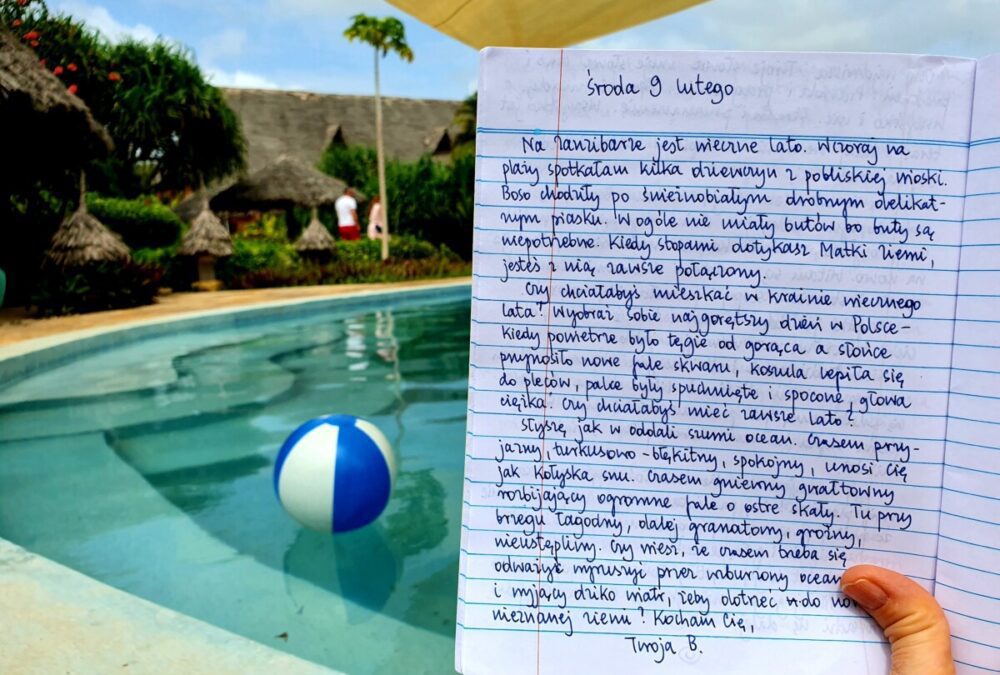 środa 9 lutego
Na Zanzibarze jest wieczne lato. Wczoraj na
plaży spotkałam kilka dziewczyn z pobliskiej wioski.
Boso chodziły po śnieżnobiałym drobnym delikat-
nym piasku. W ogóle nie miały butów bo buty są
niepotrzebne. Kiedy stopami dotykasz Matki Ziemi,
jesteś z nią zawsze połączony.
Czy chciałabyś mieszkać w krainie wiecznego
lata? Wyobraź sobie najgorętszy dzień w Polsce -
kiedy powietrze było tęgie od gorąca a słońce
przynosiło nowe fale skwaru, koszula lepiła się
do pleców, palce były spuchnięte i spocone, głowa
ciężka. Czy chciałabyś mieć zawsze lato?
Słyszę jak w oddali szumi ocean. Czasem przy-
jazny, turkusowo-błękitny, spokojny, unosi Cię
jak kołyska snu. Czasem gniewny gwałtowny
rozbijający ogromne fale o ostre skały. Tu przy
brzegu łagodny, dalej granatowy, groźny,
nieustępliwy. Czy wiesz, że czasem trzeba się
odważyć wyruszyć przez wzburzony ocean
i wyjący dziko wiatr, żeby dotrzeć do
nieznanej ziemi? Kocham Cię,
Twoja B.